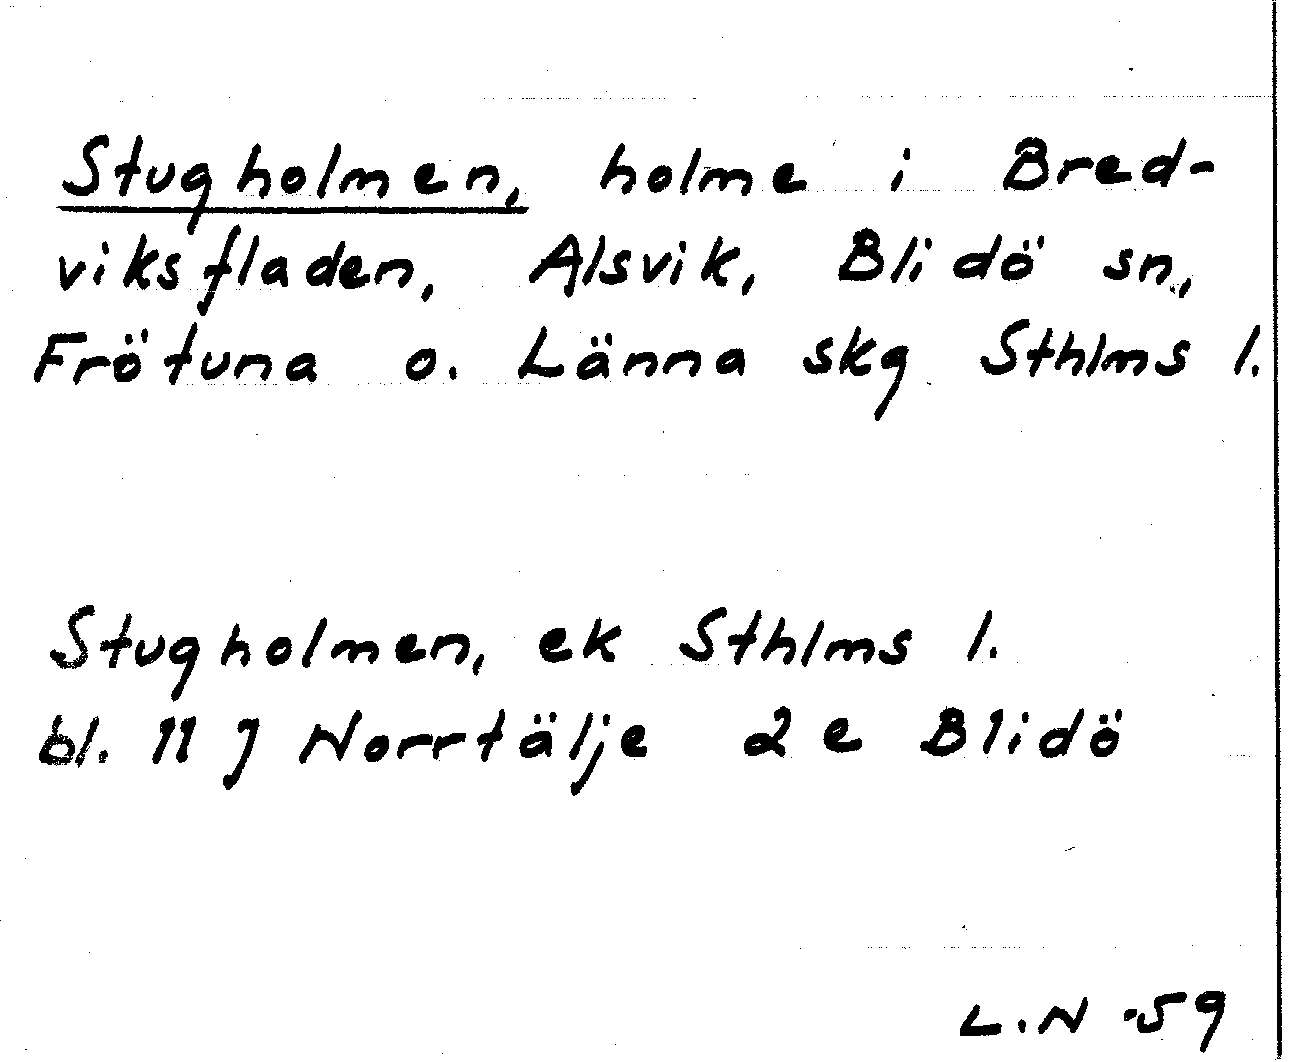 Stugholmen, holme i Bred-
viksfladen, Alsvik, Blidö sn.,
Frötuna o. Länna skg Sthlms l.
Stugholmen, ek Sthlms l.
bl. 11 J Norrtälje 2e Blidö
L.N -59